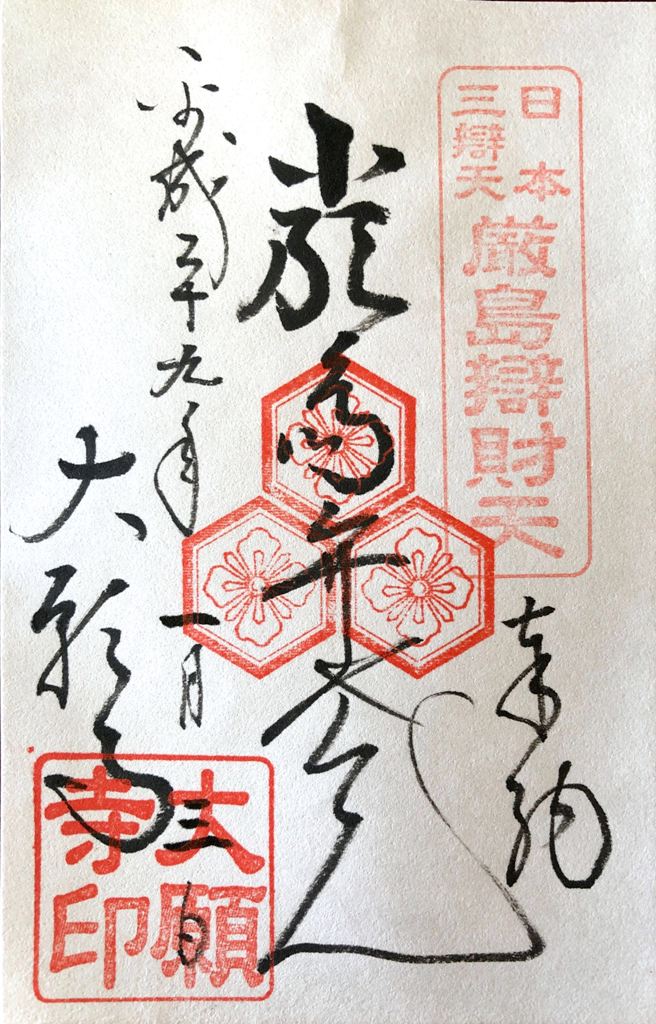 日本
三辯天
厳島辯財天
奉納
厳島弁才天
平成二十九年一月三日
大願寺
大願
寺印